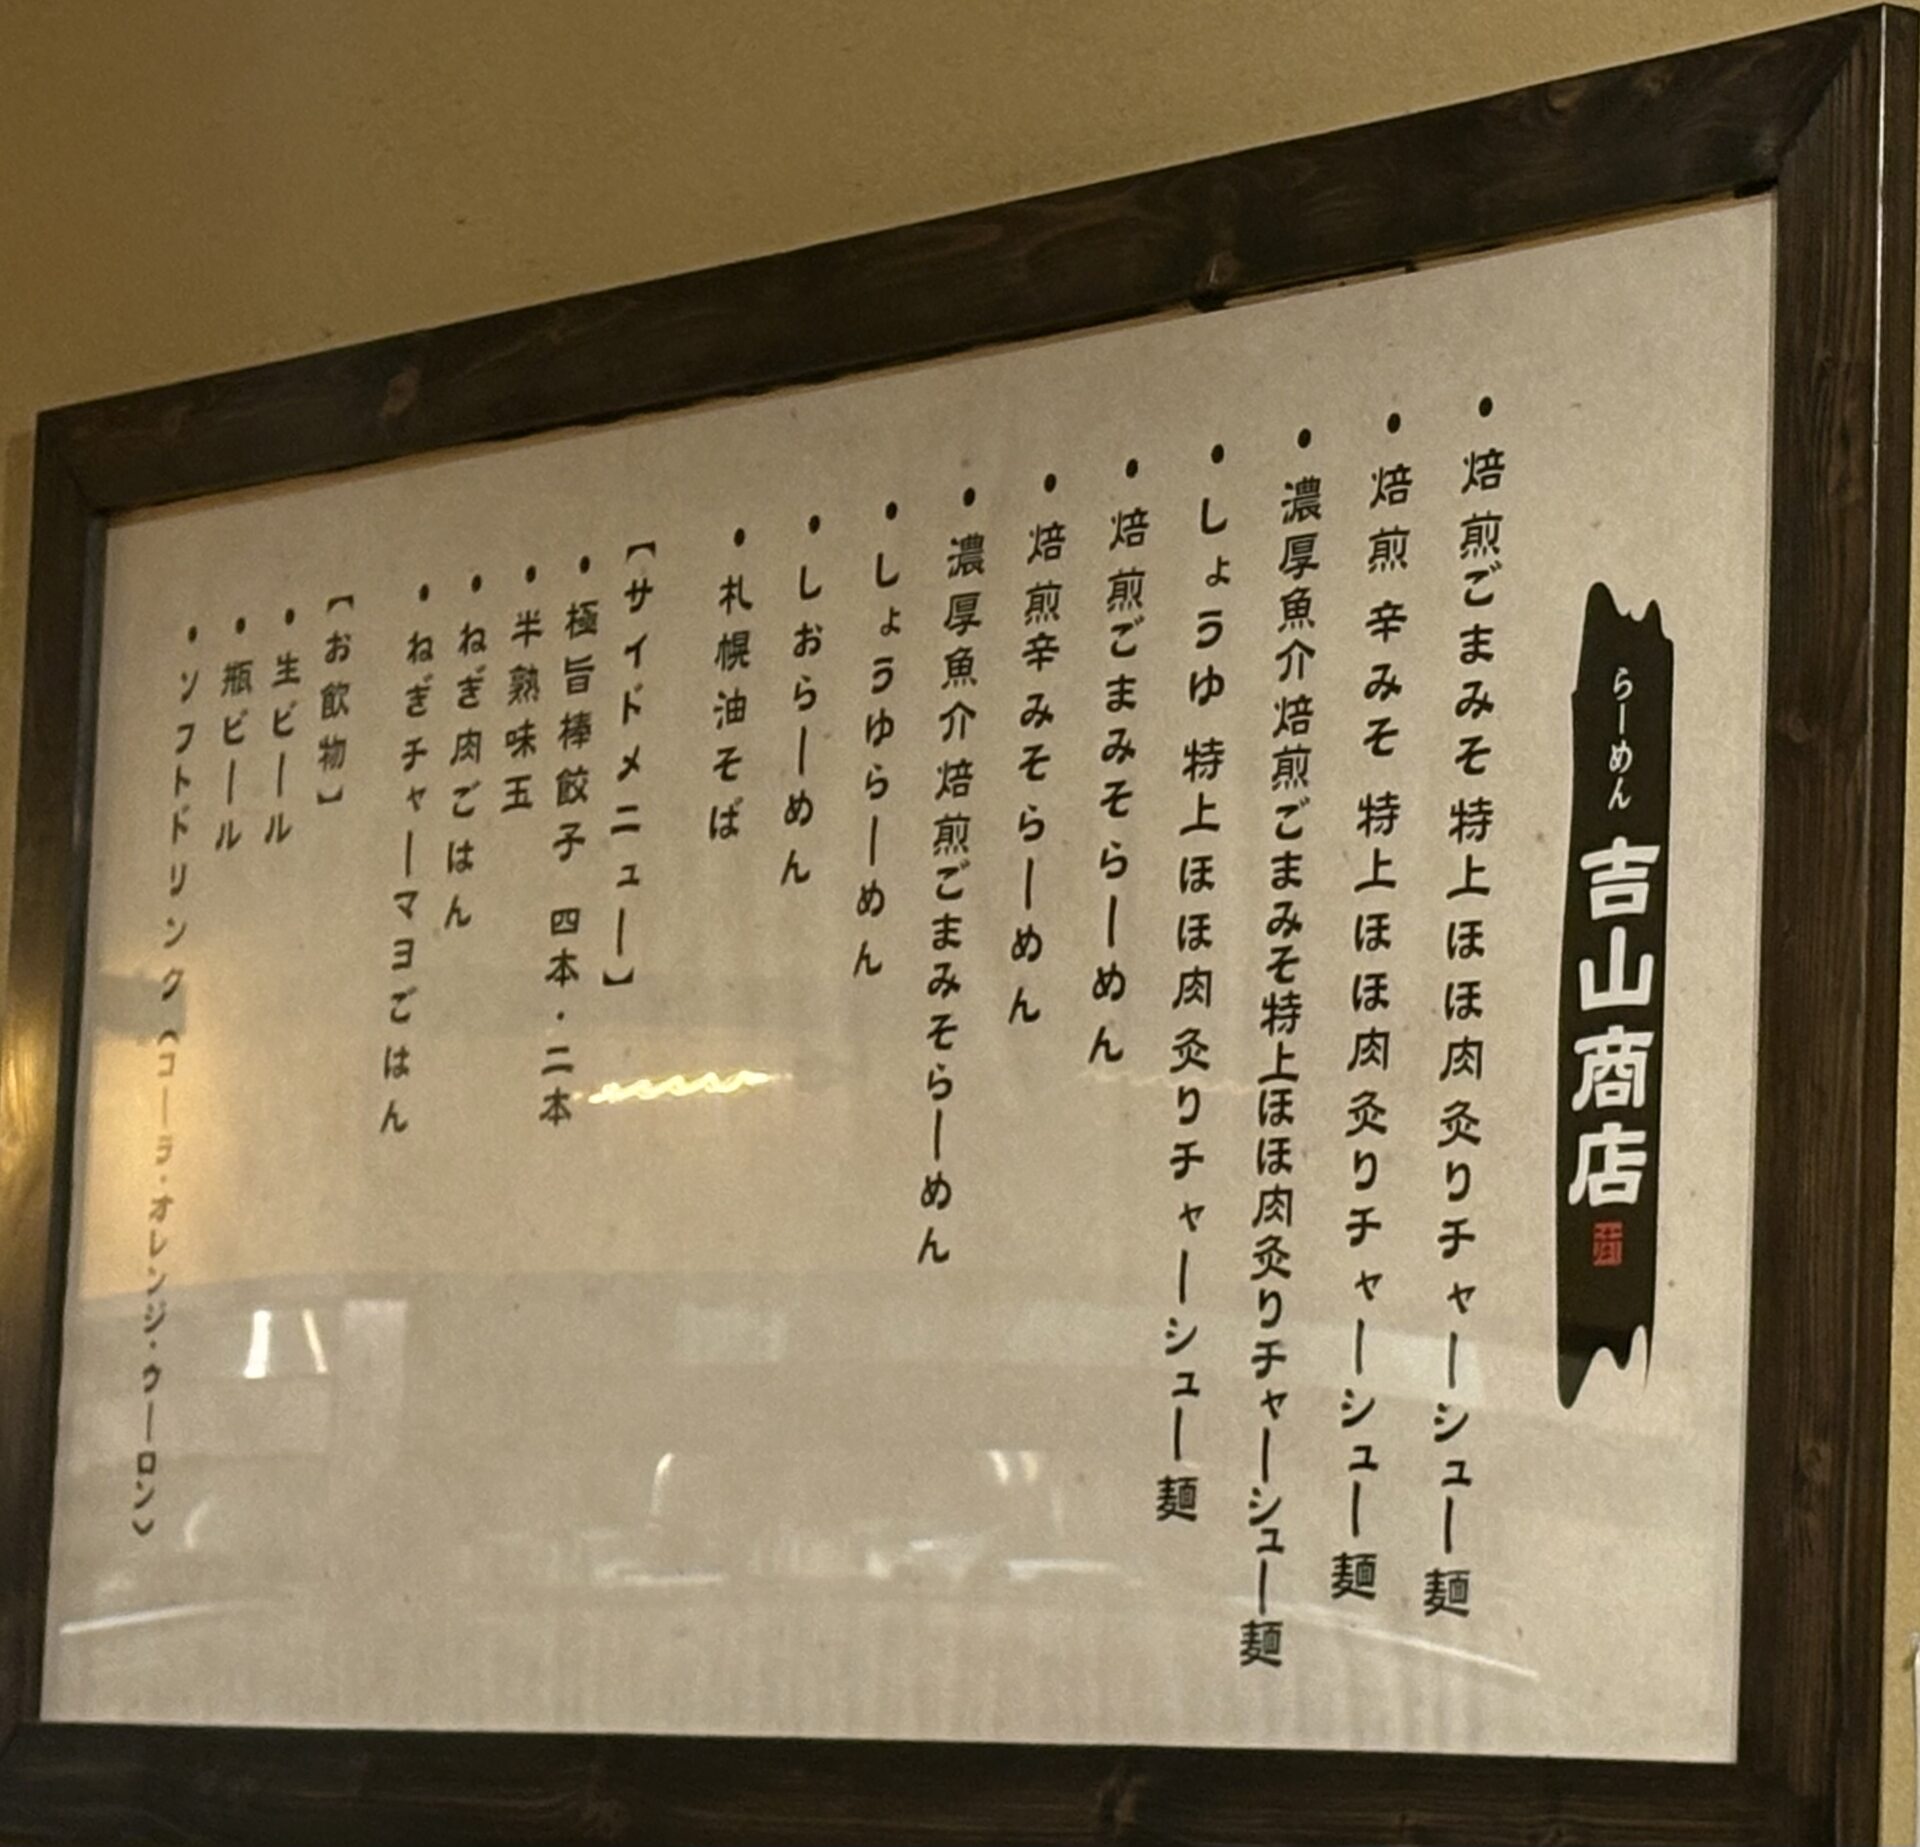 らーめん 吉山商店
・焙煎ごまみそ特上ほほ肉炙りチャーシュー麺
・焙煎 辛みそ 特上ほほ肉炙りチャーシュー麺
・濃厚魚介焙煎ごまみそ特上ほほ肉炙りチャーシュー麺
・しょうゆ 特上ほほ肉炙りチャーシュー麺
・焙煎ごまみそらーめん
・焙煎辛みそらーめん
・濃厚魚介焙煎ごまみそらーめん
・しょうゆらーめん
・しおらーめん
・札幌油そば
【サイドメニュー】
・極旨棒餃子 四本・二本
・半熟味玉
・ねぎ肉ごはん
・ねぎチャーマヨごはん
【お飲物】
・生ビール
・瓶ビール
・ソフトドリンク（コーラ・オレンジ・ウーロン）